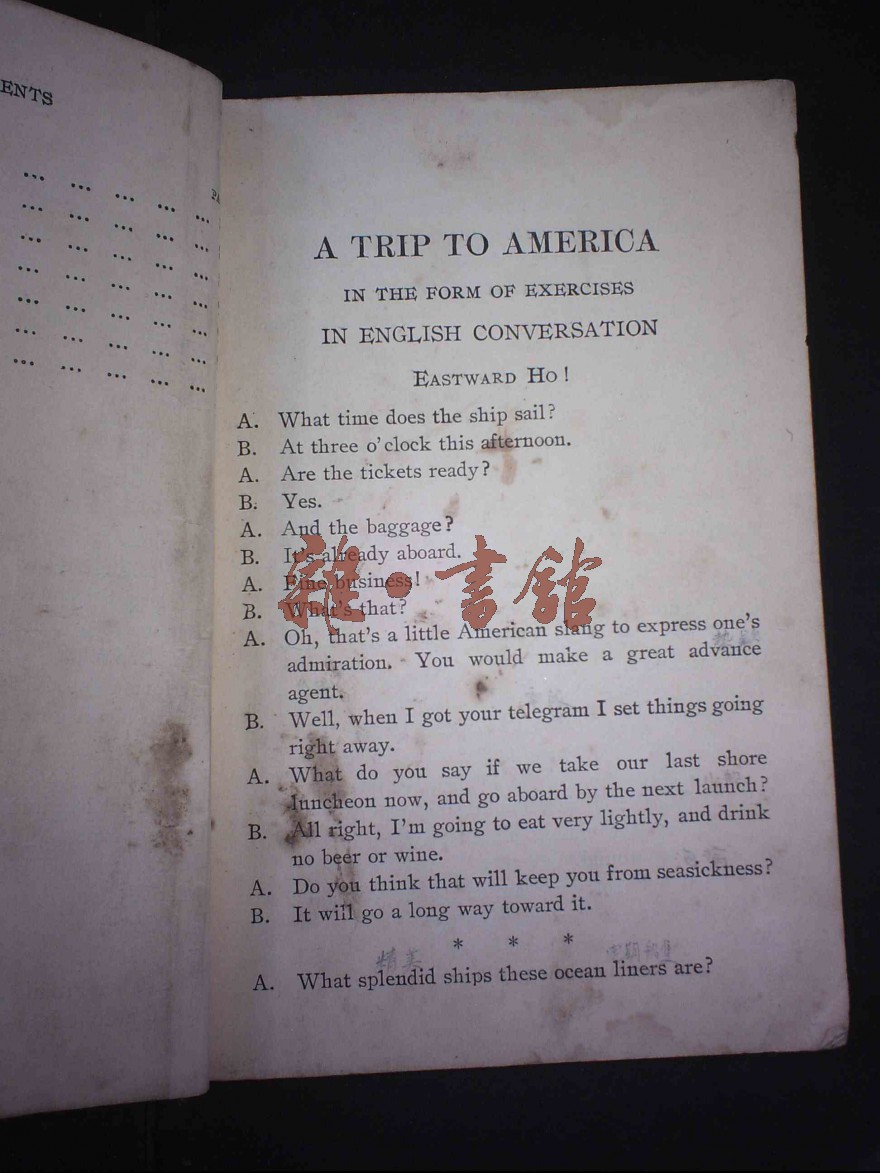 ENTS
... ... ... ... ...
... ... ... ... ...
... ... ... ... ...
... ... ... ... ...
... ... ... ... ...
... ... ... ... ...
... ... ... ... ...
A TRIP TO AMERICA
IN THE FORM OF EXERCISES
IN ENGLISH CONVERSATION
EASTWARD HO!
A. What time does the ship sail?
B. At three o'clock this afternoon.
A. Are the tickets ready?
B. Yes.
A. And the baggage?
B. It's already aboard.
A. Fine business!
B. What's that?
雜·書館
A. Oh, that's a little American slang to express one's
admiration. You would make a great advance
agent.
B. Well, when I got your telegram I set things going
right away.
A. What do you say if we take our last shore
luncheon now, and go aboard by the next launch?
B. All right, I'm going to eat very lightly, and drink
no beer or wine.
A. Do you think that will keep you from seasickness?
B. It will go a long way toward it.
* * *
精美
A. What splendid ships these ocean liners are?